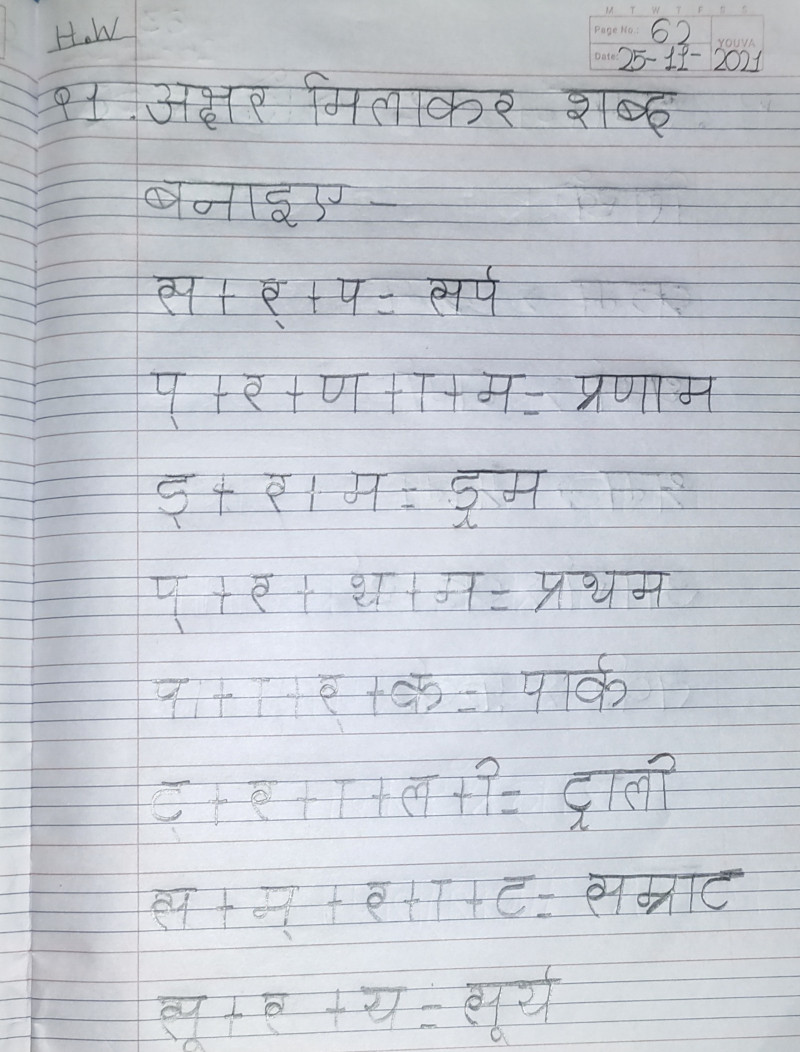 H.W
M T W T F S S
Page No.: 62
YOUVA
Date: 25-11-2021
Q1. अक्षर मिलाकर शब्द
बनाइए -
स + र् + प = सर्प
प् + र + ण + ा + म = प्रणाम
ड् + र + म = ड्रम
प् + र + थ + म = प्रथम
प + ा + र् + क = पार्क
ट् + र + ा + ल + ी = ट्राली
स + म् + र + ा + ट = सम्राट
सू + र + य = सूर्य